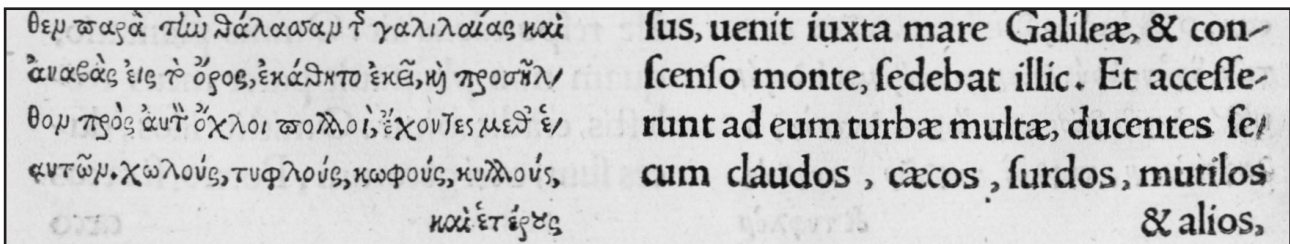 θεν παρὰ τὴν θάλασσαν τ῀ γαλιλαίας καὶ
ἀναβὰς ἐις τὸ ὄρος, ἐκάθητο ἐκεῖ, κὴ προσῆλ/
θον πρὸς ἀυτ῀ ὄχλοι πολλοὶ, ἔχοντες μεθ ἑ/
αυτῶν. χωλούς, τυφλούς, κωφούς, κυλλούς,
καὶ ἑτέρους
ſus, uenit iuxta mare Galileæ, & con-
ſcenſo monte, ſedebat illic. Et acceſſe-
runt ad eum turbæ multæ, ducentes ſe/
cum claudos, cæcos, ſurdos, mutilos
& alios,